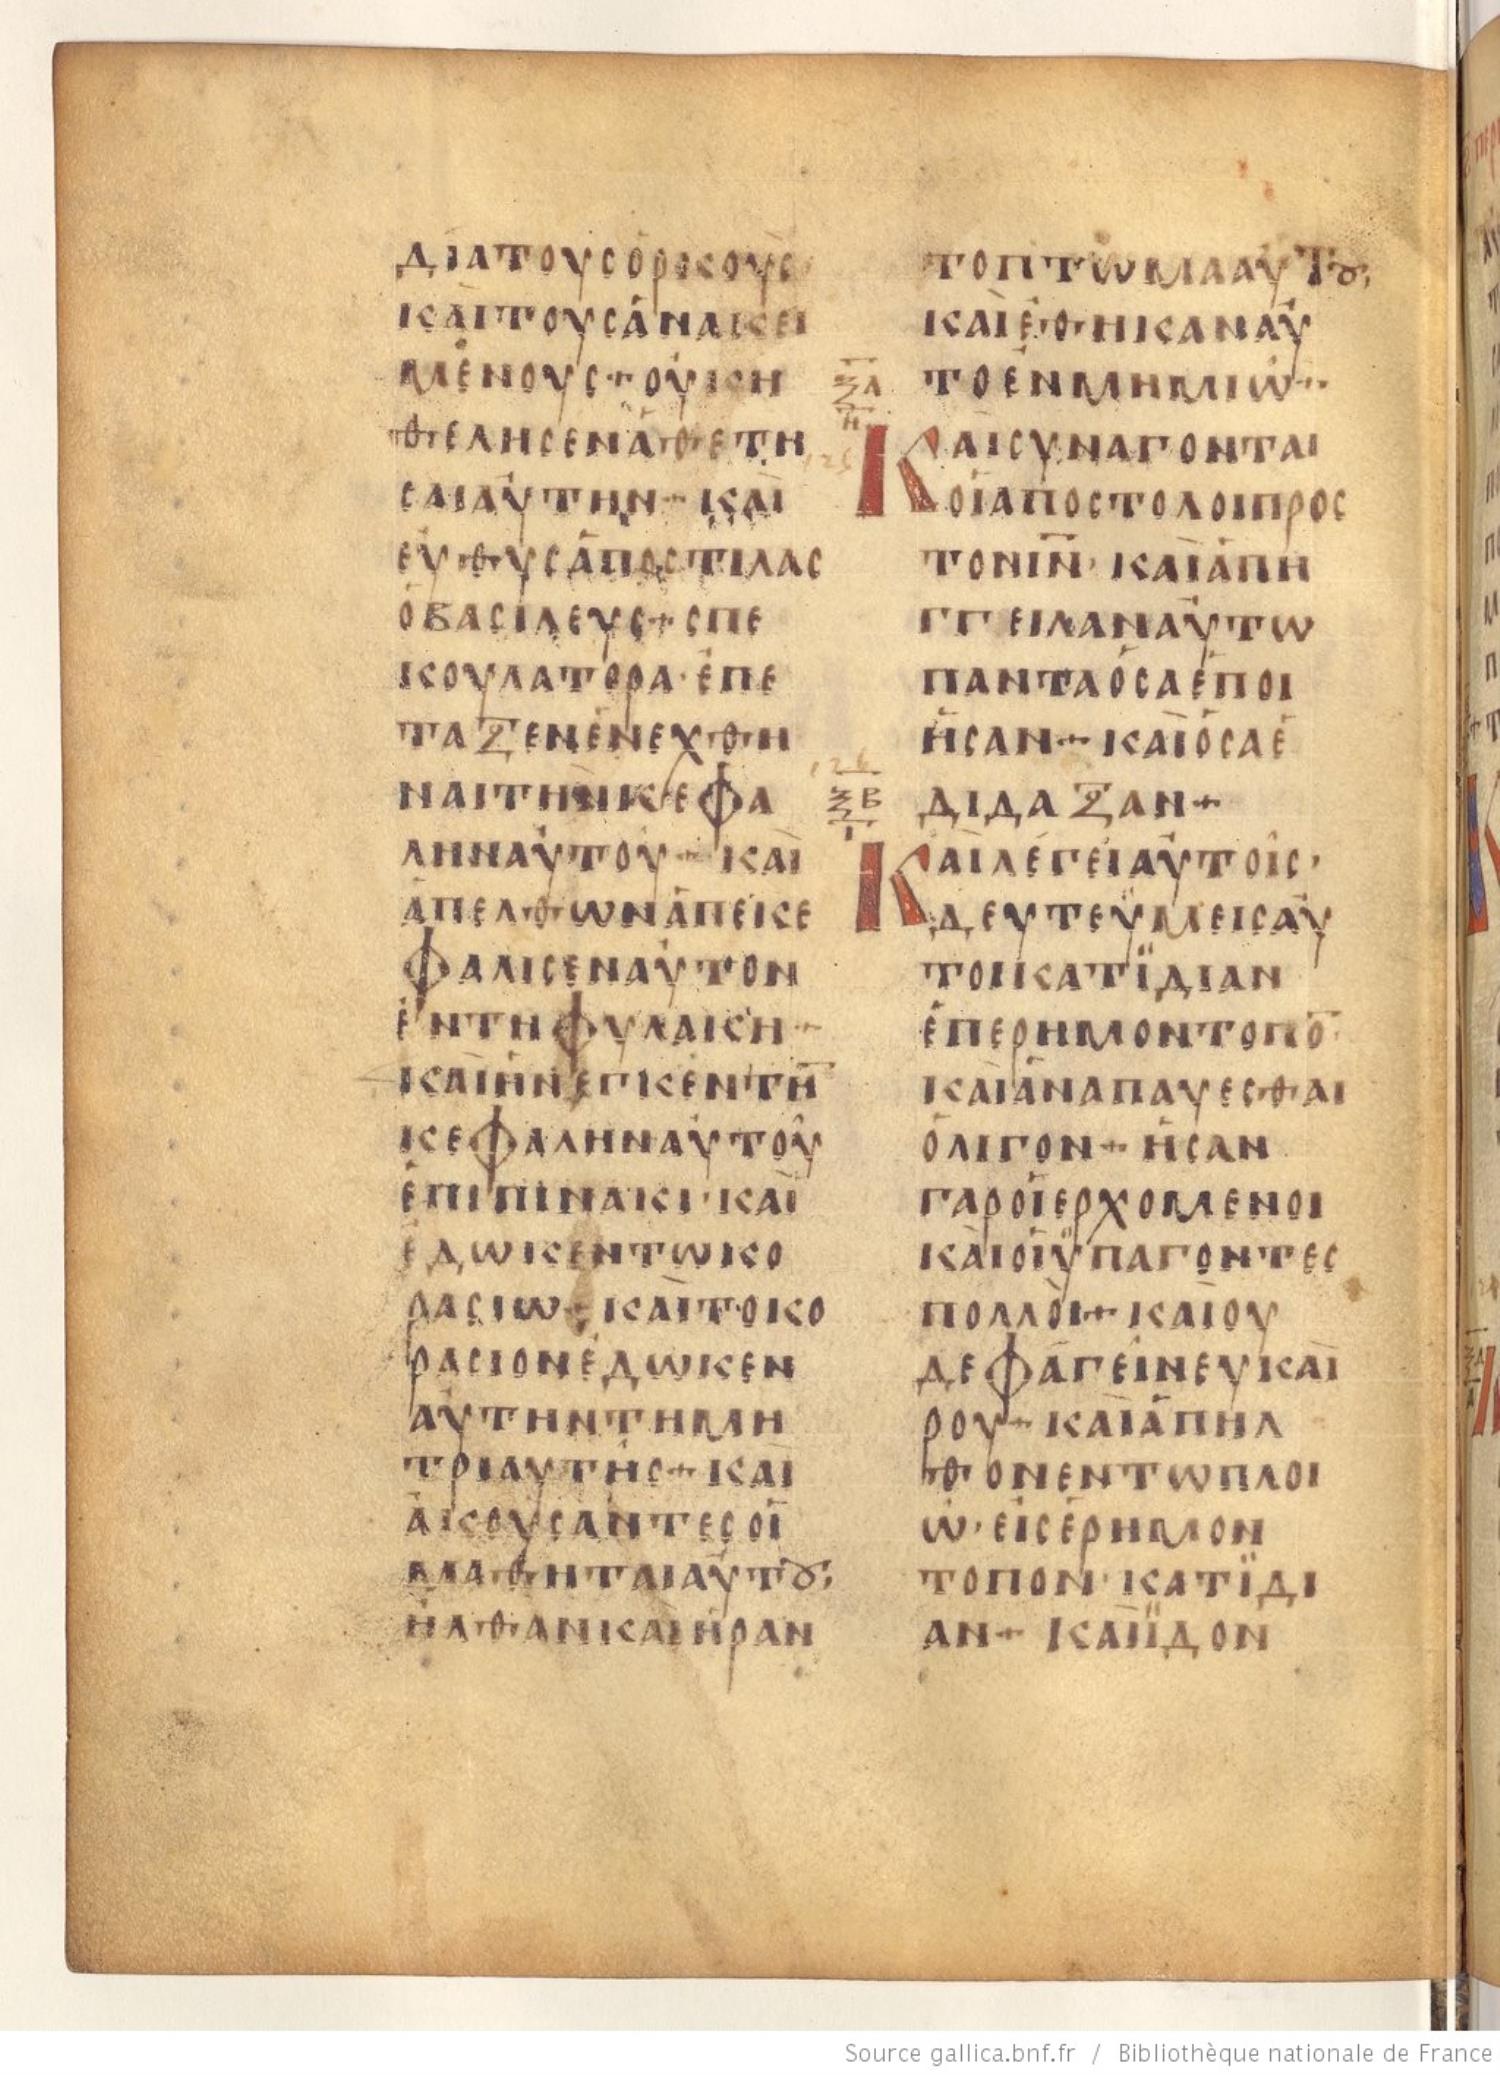 ΔΙΑΤΟΥϹΟΡΚΟΥϹ
ΚΑΙΤΟΥϹΑΝΑΚΕΙ
ΜΕΝΟΥϹ+ΟΥΚΗ
ΘΕΛΗϹΕΝΑΘΕΤΗ
ϹΑΙΑΥΤΗΝ+ΚΑΙ
ΕΥΘΥϹΑΠΟϹΤΙΛΑϹ
ΟΒΑϹΙΛΕΥϹ+ϹΠΕ
ΚΟΥΛΑΤΟΡΑ·ΕΠΕ
ΤΑΞΕΝΕΝΕΧΘΗ
ΝΑΙΤΗΝΚΕΦΑ
ΛΗΝΑΥΤΟΥ+ΚΑΙ
ΑΠΕΛΘΩΝΑΠΕΚΕ
ΦΑΛΙϹΕΝΑΥΤΟΝ
ΕΝΤΗΦΥΛΑΚΗ+
ΚΑΙΗΝΕΓΚΕΝΤΗ̅
ΚΕΦΑΛΗΝΑΥΤΟΥ
ΕΠΙΠΙΝΑΚΙ·ΚΑΙ
ΕΔΩΚΕΝΤΩΚΟ
ΡΑϹΙΩ+ΚΑΙΤΟΚΟ
ΡΑϹΙΟΝΕΔΩΚΕΝ
ΑΥΤΗΝΤΗΜΗ
ΤΡΙΑΥΤΗϹ+ΚΑΙ
ΑΚΟΥϹΑΝΤΕϹΟΙ
ΜΑΘΗΤΑΙΑΥΤȢ;
ΗΛΘΑΝΚΑΙΗΡΑΝ
ΤΟΠΤΩΜΑΑΥΤȢ;
ΚΑΙΕΘΗΚΑΝΑΥ
ΤΟΕΝΜΗΜΙΩ+·
ΞΑ
Η
125
ΚΑΙϹΥΝΑΓΟΝΤΑΙ
ΟΙΑΠΟϹΤΟΛΟΙΠΡΟϹ
ΤΟΝΙ̅Ν̅·ΚΑΙΑΠΗ
ΓΓΕΙΛΑΝΑΥΤΩ
ΠΑΝΤΑΟϹΑΕΠΟΙ
ΗϹΑΝ+ΚΑΙΟϹΑΕ
ΔΙΔΑΞΑΝ+
126
ΞΒ
Ι
ΚΑΙΛΕΓΕΙΑΥΤΟΙϹ·
ΔΕΥΤΕΫΜΕΙϹΑΥ
ΤΟΙΚΑΤΪΔΙΑΝ
ΕΠΕΡΗΜΟΝΤΟΠΟ̅
ΚΑΙΑΝΑΠΑΥΕϹΘΑΙ
ΟΛΙΓΟΝ+ΗϹΑΝ
ΓΑΡΟΙΕΡΧΟΜΕΝΟΙ
ΚΑΙΟΙΫΠΑΓΟΝΤΕϹ
ΠΟΛΛΟΙ+ΚΑΙΟΥ
ΔΕΦΑΓΕΙΝΕΥΚΑΙ
ΡΟΥ+ΚΑΙΑΠΗΛ
ΘΟΝΕΝΤΩΠΛΟΙ
Ω·ΕΙϹΕΡΗΜΟΝ
ΤΟΠΟΝ·ΚΑΤΪΔΙ
ΑΝ+ΚΑΙΪΔΟΝ
Source gallica.bnf.fr / Bibliothèque nationale de France